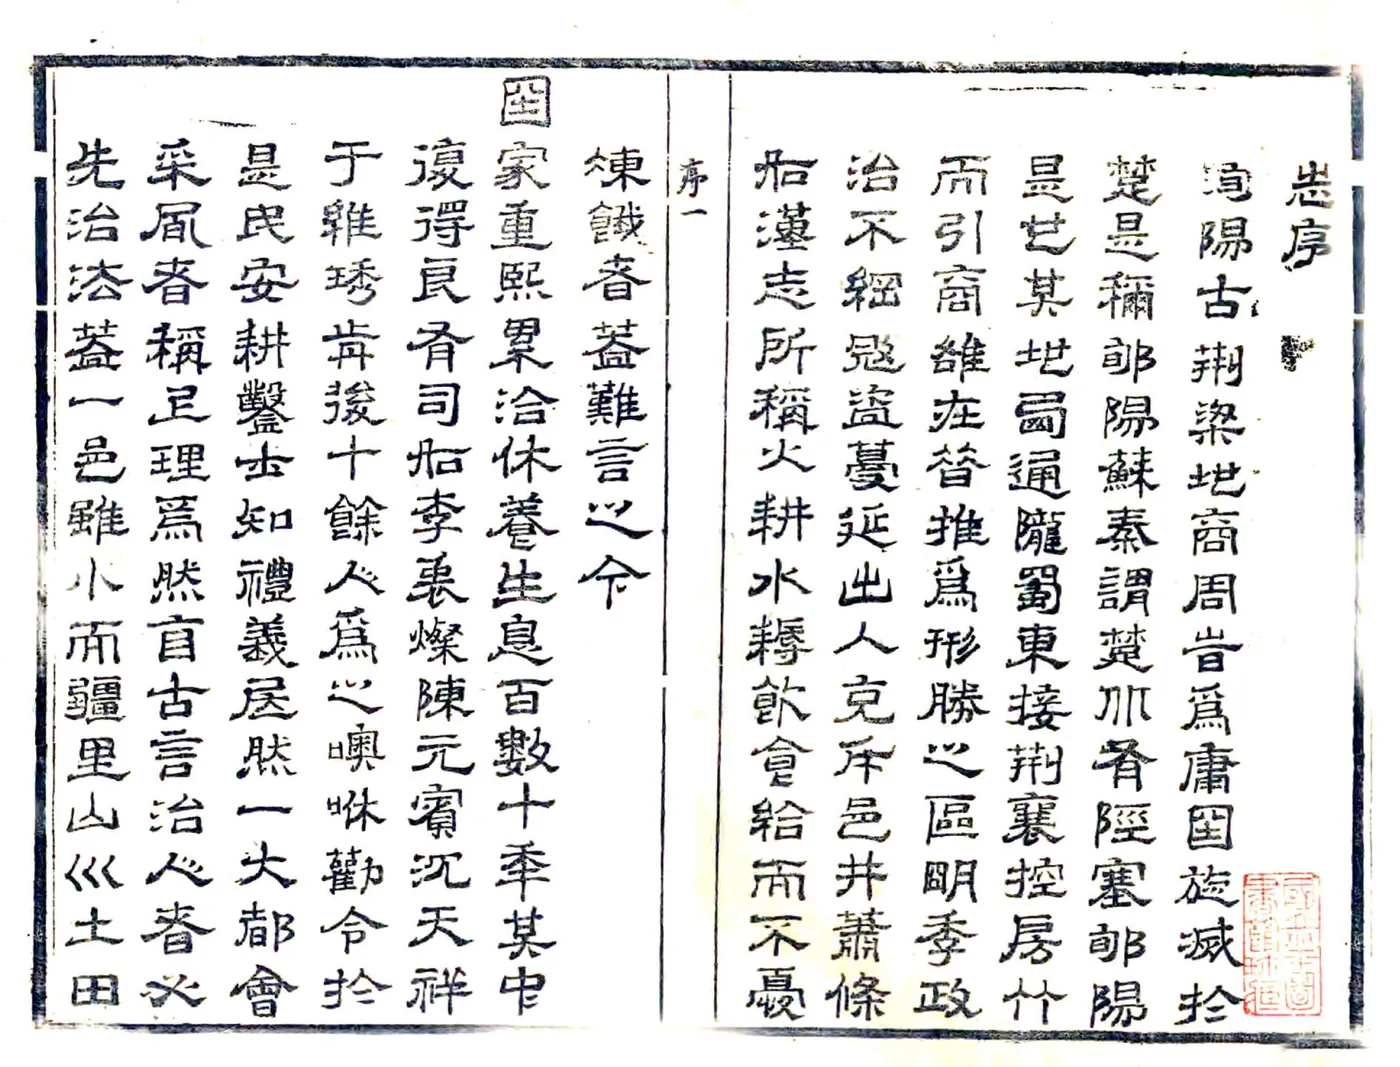 志序
洵陽古荆梁地商周旹爲庸国旋滅於
楚是稱郇陽蘇秦謂楚北有陘塞郇陽
是也其地西通隴蜀東接荆襄控房竹
而引商雒在昔推爲形勝之區明季政
治不綱寇盜蔓延出人克斥邑井蕭條
如漢志所稱火耕水耨飲食給而不憂
序一
煉餓者蓋難言之今
国家重熙累洽休養生息百數十年其中
復得良有司如李裛燦陳元賓沉天祥
于維琇肯後十餘人爲之噢咻勸令於
是民安耕鑿士知禮義居然一大都會
采風者稱上理焉然盲古言治人者必
先治法蓋一邑雖小而疆里山巛土田